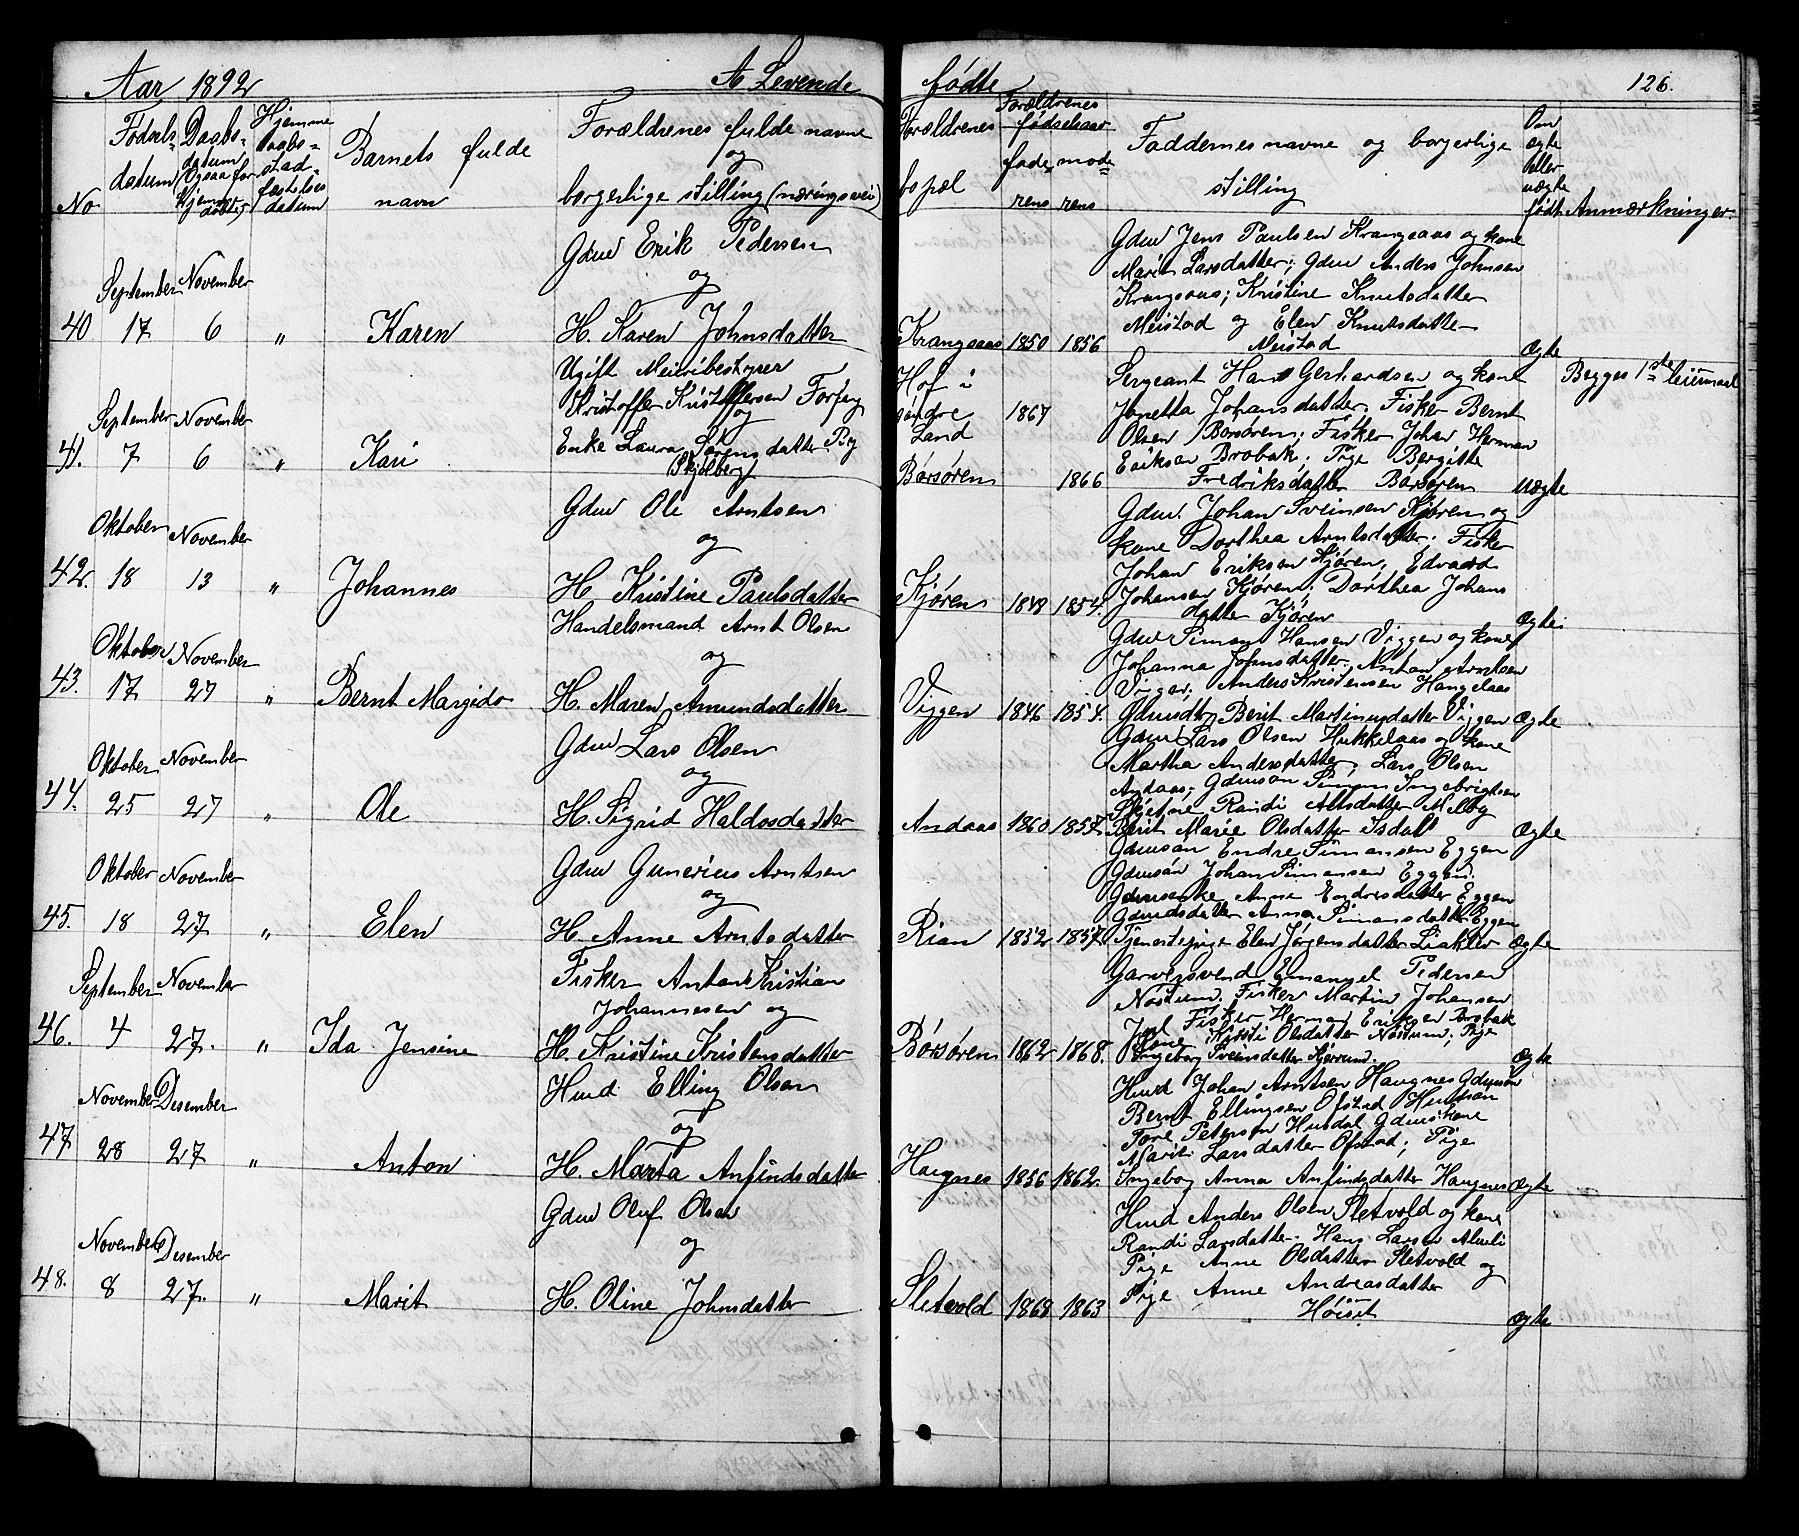 Aar 1892
A Levende
fødte
126.
No
Fødsels-
datum
Daabs-
datum
(Ogsaa for
Hjemme-
daab)
Hjemme
daabs-
stad-
festelses
datum
Barnets fulde
navn
Forældrenes fulde navne
og
borgerlige stilling (næringsvei)
Forældrenes
bopæl
Forældrenes
fødselsaar
fade-
rens
mode-
rens
Faddernes navne og borgerlige
stilling
Om
ægte
eller
uægte
født
Anmærkninger.
40
September
17
November
6
"
Karen
Gdm Erik Pedersen
og
H. Karen Johnsdatter
Krangsaas
1850
1856
Gdm Jens Paulsen Krangsaas og kone
Marit Larsdatter; Gdm Anders Johnsen
Krangsaas; Kristine Knutsdatter
Meistad og Elen Knutsdatter
Meistad
Ægte
41.
September
7
November
6
"
Kari
Ugift Meieribestyrer
Kristoffer Kristoffersen Forfang
og
Enke Laura Sørensdatter
Skjølberg
Hof i
søndre
Land
Børsøren
1867
1866
Sergeant Hans Gerhardsen og kone
Jonetta Johansdatter. Fisker Bernt
Olsen Børsøren; Fisker Johan Herman
Eriksen Brobak; Pige Bergitte
Fredriksdatter Børsøren
uægte
Begges 1ste leiermaal
42.
Oktober
18
November
13
"
Johannes
Gdm Ole Arntsen
og
H Kristine Paulsdatter
Kjøren
1848
1854.
Gdm. Johan Sveinsen Kjøren og
kone Dorthea Arntsdatter. Fisker
Johan Eriksen Kjøren; Edvard
Johansen Kjøren; Dorthea Johans
datter Kjøren
Ægte
43.
Oktober
17
November
27
"
Bernt Margido
Handelsmand Arnt Olsen
og
H. Maren Amundsdatter
Viggen
1846
1854.
Gdm Simon Hansen Viggen og kone
Johanna Johnsdatter, Anton Arntsen
Viggen. Anders Kristensen Hangelaas
Berit Martinusdatter Viggen
Ægte
44.
Oktober
25
November
27
"
Ole
Gdm Lars Olsen
og
H. Sigrid Haldosdatter
Andaas
1860
1857
Gdm Lars Olsen Hukkelaas og kone
Martha Andersdatter, Lars Olsen
Andaas; Gdmsøn Simon Ingebrigtsen
Randi Melby
Berit Marie Olsdatter
Ægte
45.
Oktober
18
November
27
"
Elen
Gdm Gunerius Arntsen
og
H. Anne Arntsdatter
Rian
1852
1857.
Gdmsøn Endre Simonsen Eggen
Gdmsøn Johan Simonsen Eggen.
Gdmsenke Anne Endresdatter Eggen
Gdmdsdatter Anna Simonsdatter Eggen
Tjenestepige Elen Jørgensdatter
Ægte
46.
September
4
November
27.
"
Ida Jensine
Fisker Anton Kristian
Johannesen og
H. Kristine Kristensdatter
Børsøren
1862
1868.
Garversvend Emanuel Pedersen
Nostum. Fisker Martin Johansen
Fisker Herman Eriksen Brobak
kone Kirsti Olsdatter Nostum; Pige
Ingeborg Sveinsdatter
Ægte
47.
November
28
Desember
27
"
Anton
Hmd Elling Olsen
og
H. Marta Anfindsdatter
Haugnes
1856
1862.
Hmd Johan Arntsen Haugnes Gdmsøn
Bernt Ellingsen Ofstad Hmdsøn
Tore Petersen Husdal Gdmskone
Marit Larsdatter Ofstad; Pige
Ingebog Anna Anfindsdatter Haugnes
Ægte
48.
November
8
Desember
27.
"
Marit
Gdm Oluf Olsen
og
H. Oline Johnsdatter
Sletvold
1868
1863
Hmd Anders Olsen Sletvold og kone
Randi Larsdatter. Hans Larsen
Pige Anne Olsdatter Sletvold og
Pige Anne Andreasdatter
Høiset
Ægte